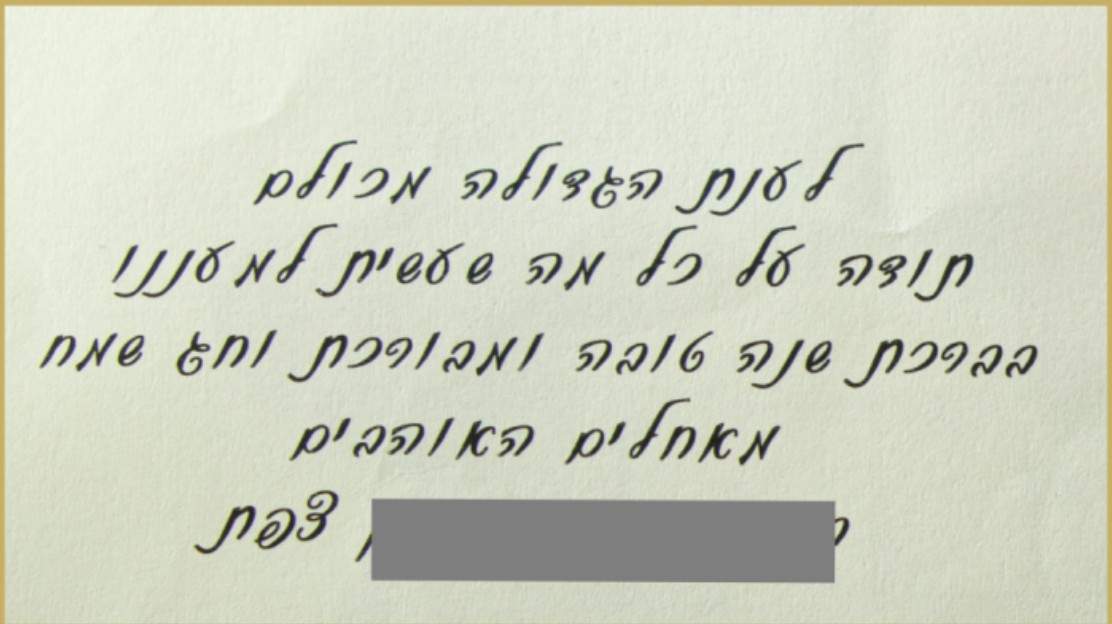 לענת הגדולה מכולם
תודה על כל מה שעשית למעננו
בברכת שנה טובה ומבורכת וחג שמח
מאחלים האוהבים
צפת